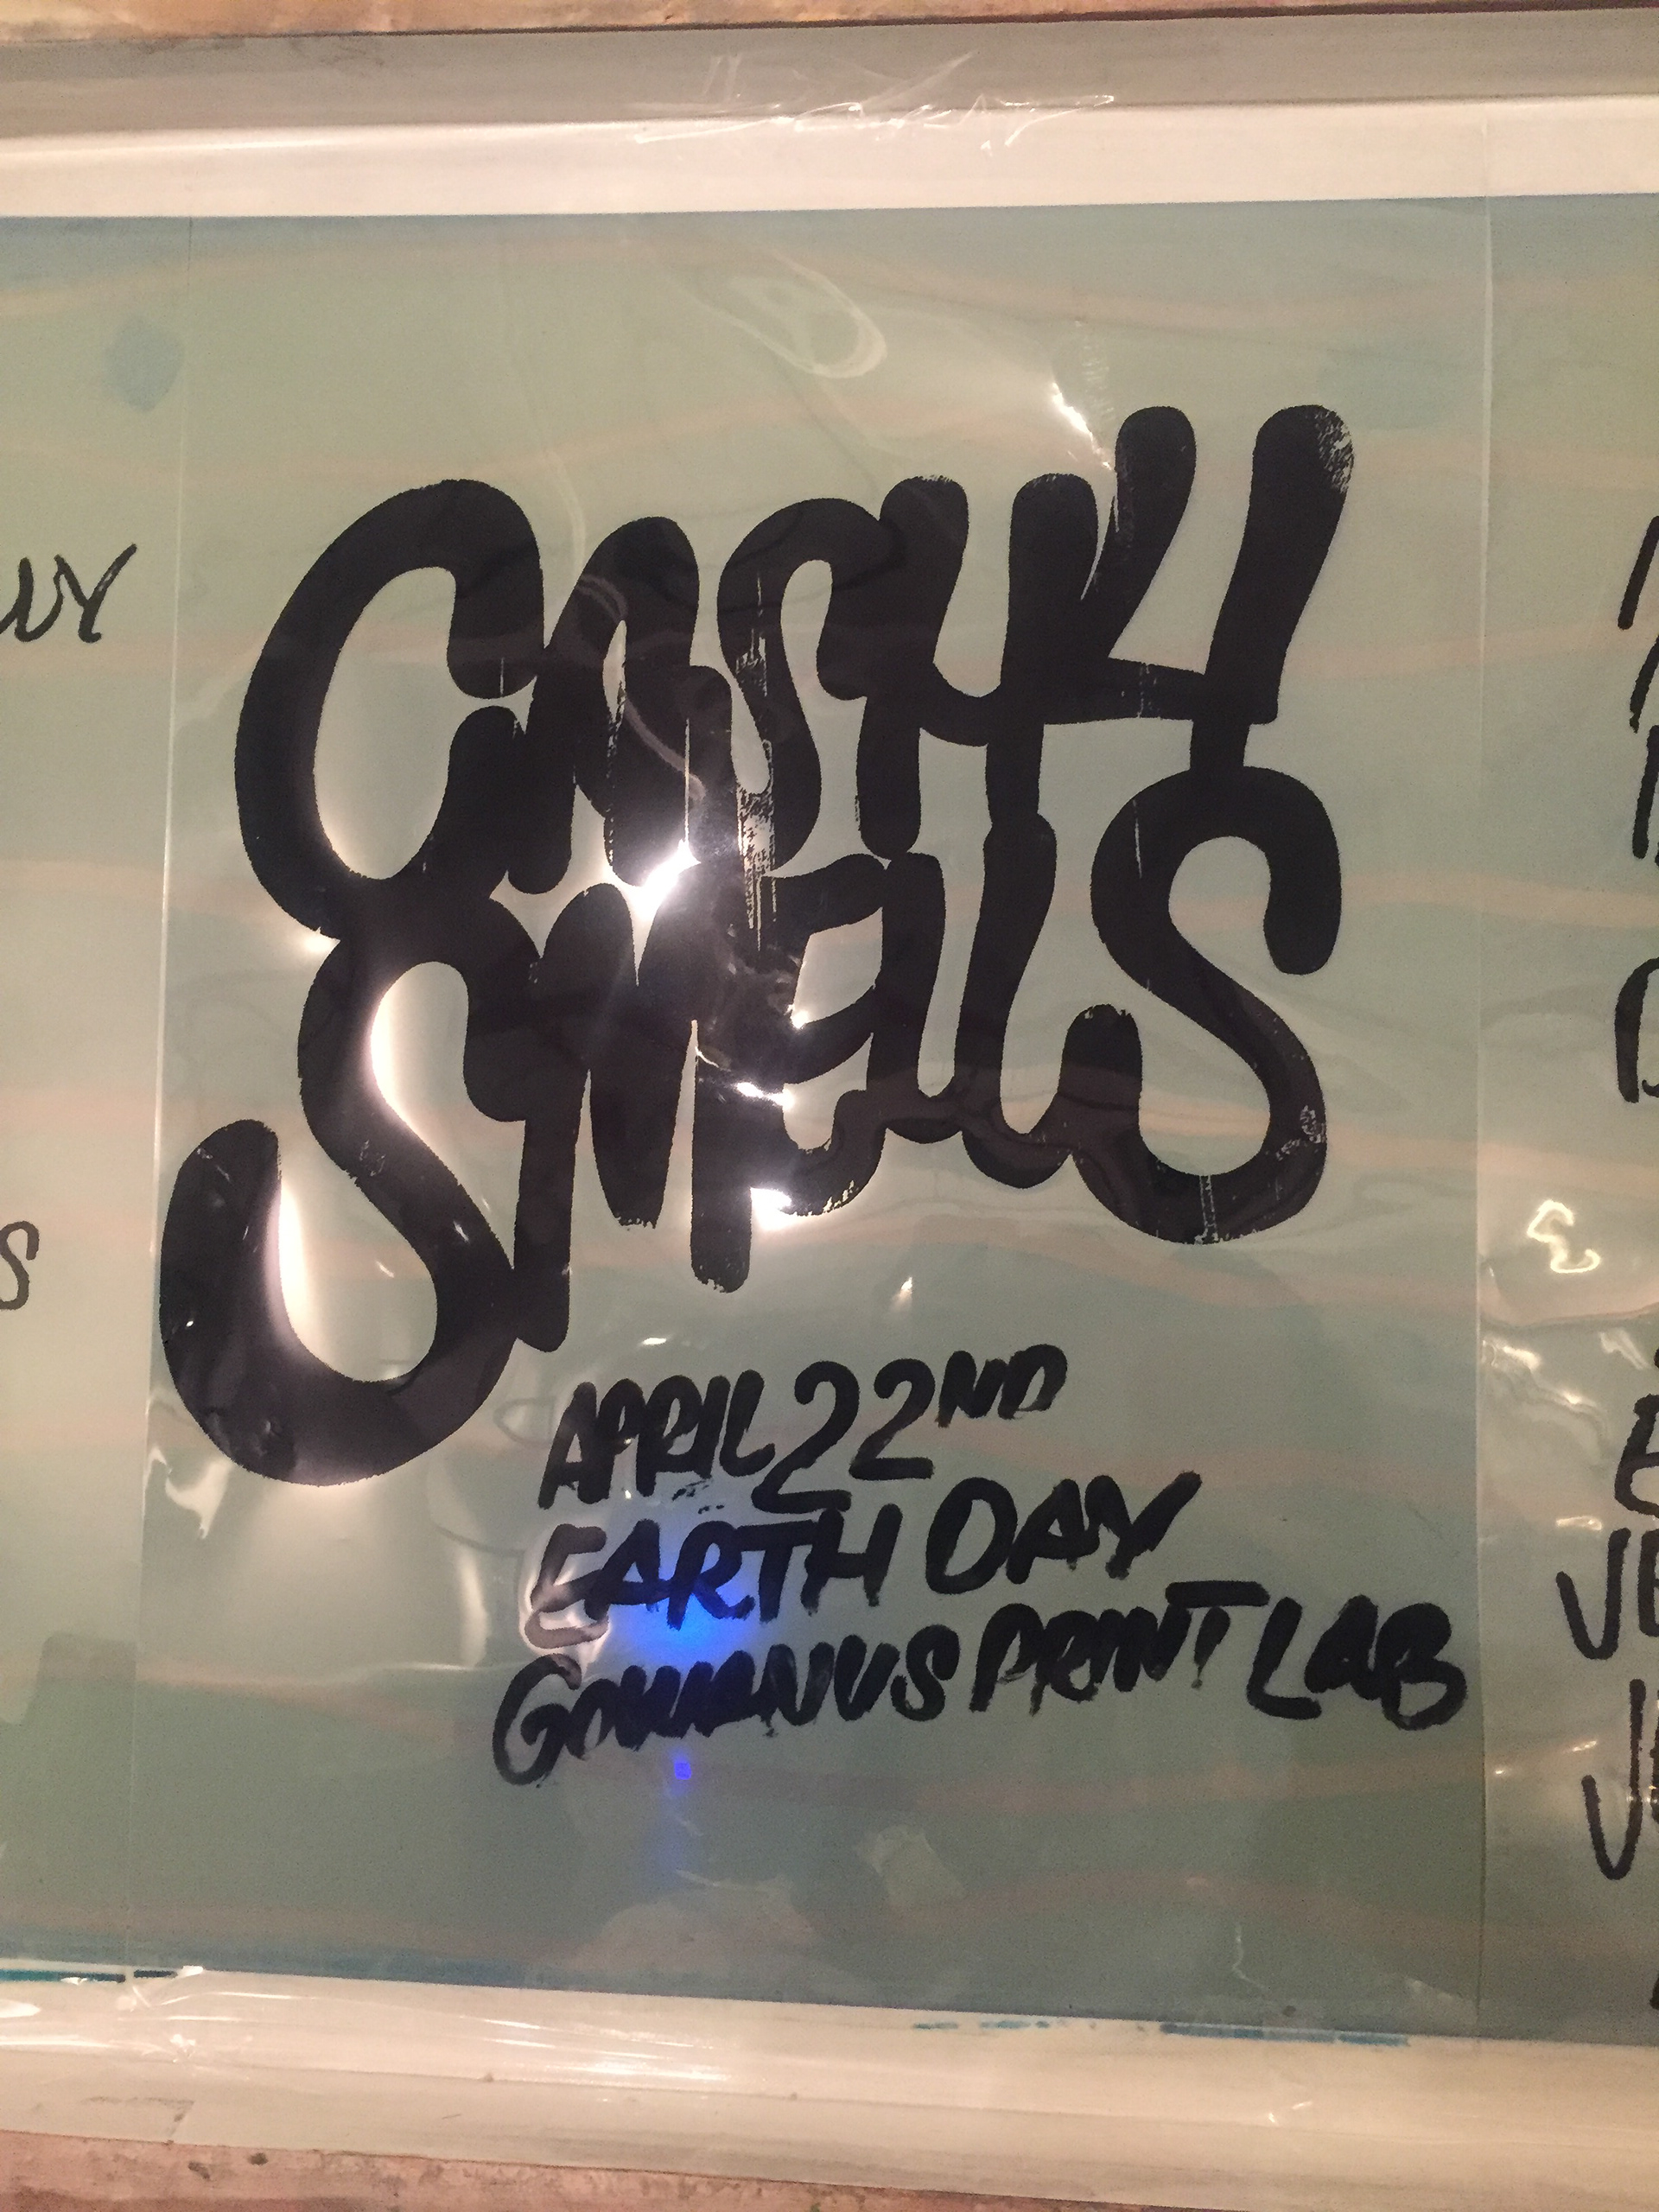 CASH 4
SMELLS
APRIL 22ND
EARTH DAY
GOWANUS PRINT LAB